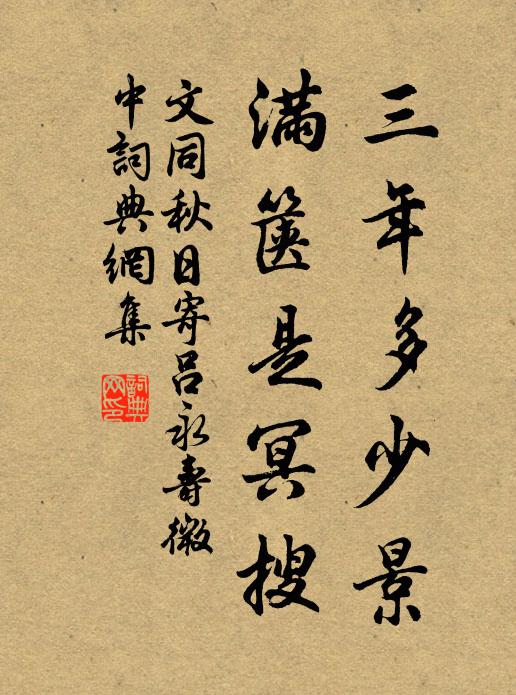 三年多少景
滿篋是冥搜
文同秋日寄呂永壽微
中詞典網集
詞典
网印